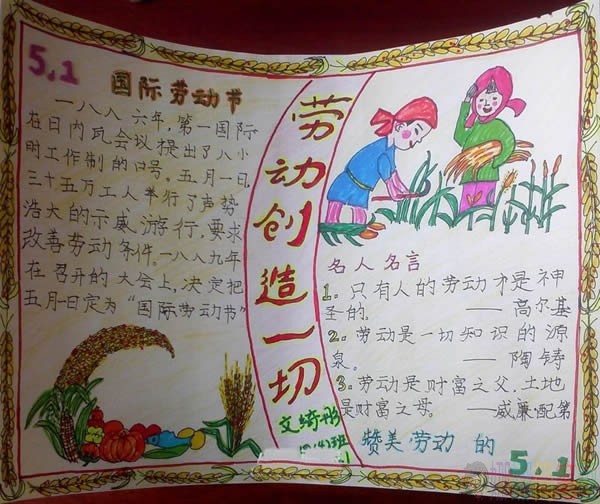 5.1
国际劳动节
一八八六年,第一国际
在日内瓦会议提出了八小
时工作制的口号。五月一日,
三十五万工人举行了声势
浩大的示威游行,要求
改善劳动条件.一八八九年
在召开的大会上,决定把
五月一日定为“国际劳动节”
劳动创造一切
文绮彤
名人名言
1。只有人的劳动才是神
圣的。 ——高尔基
2。劳动是一切知识的源
泉。 ——陶铸
3。劳动是财富之父.土地
是财富之母。 ——威廉·配第
赞美劳动的
5.1